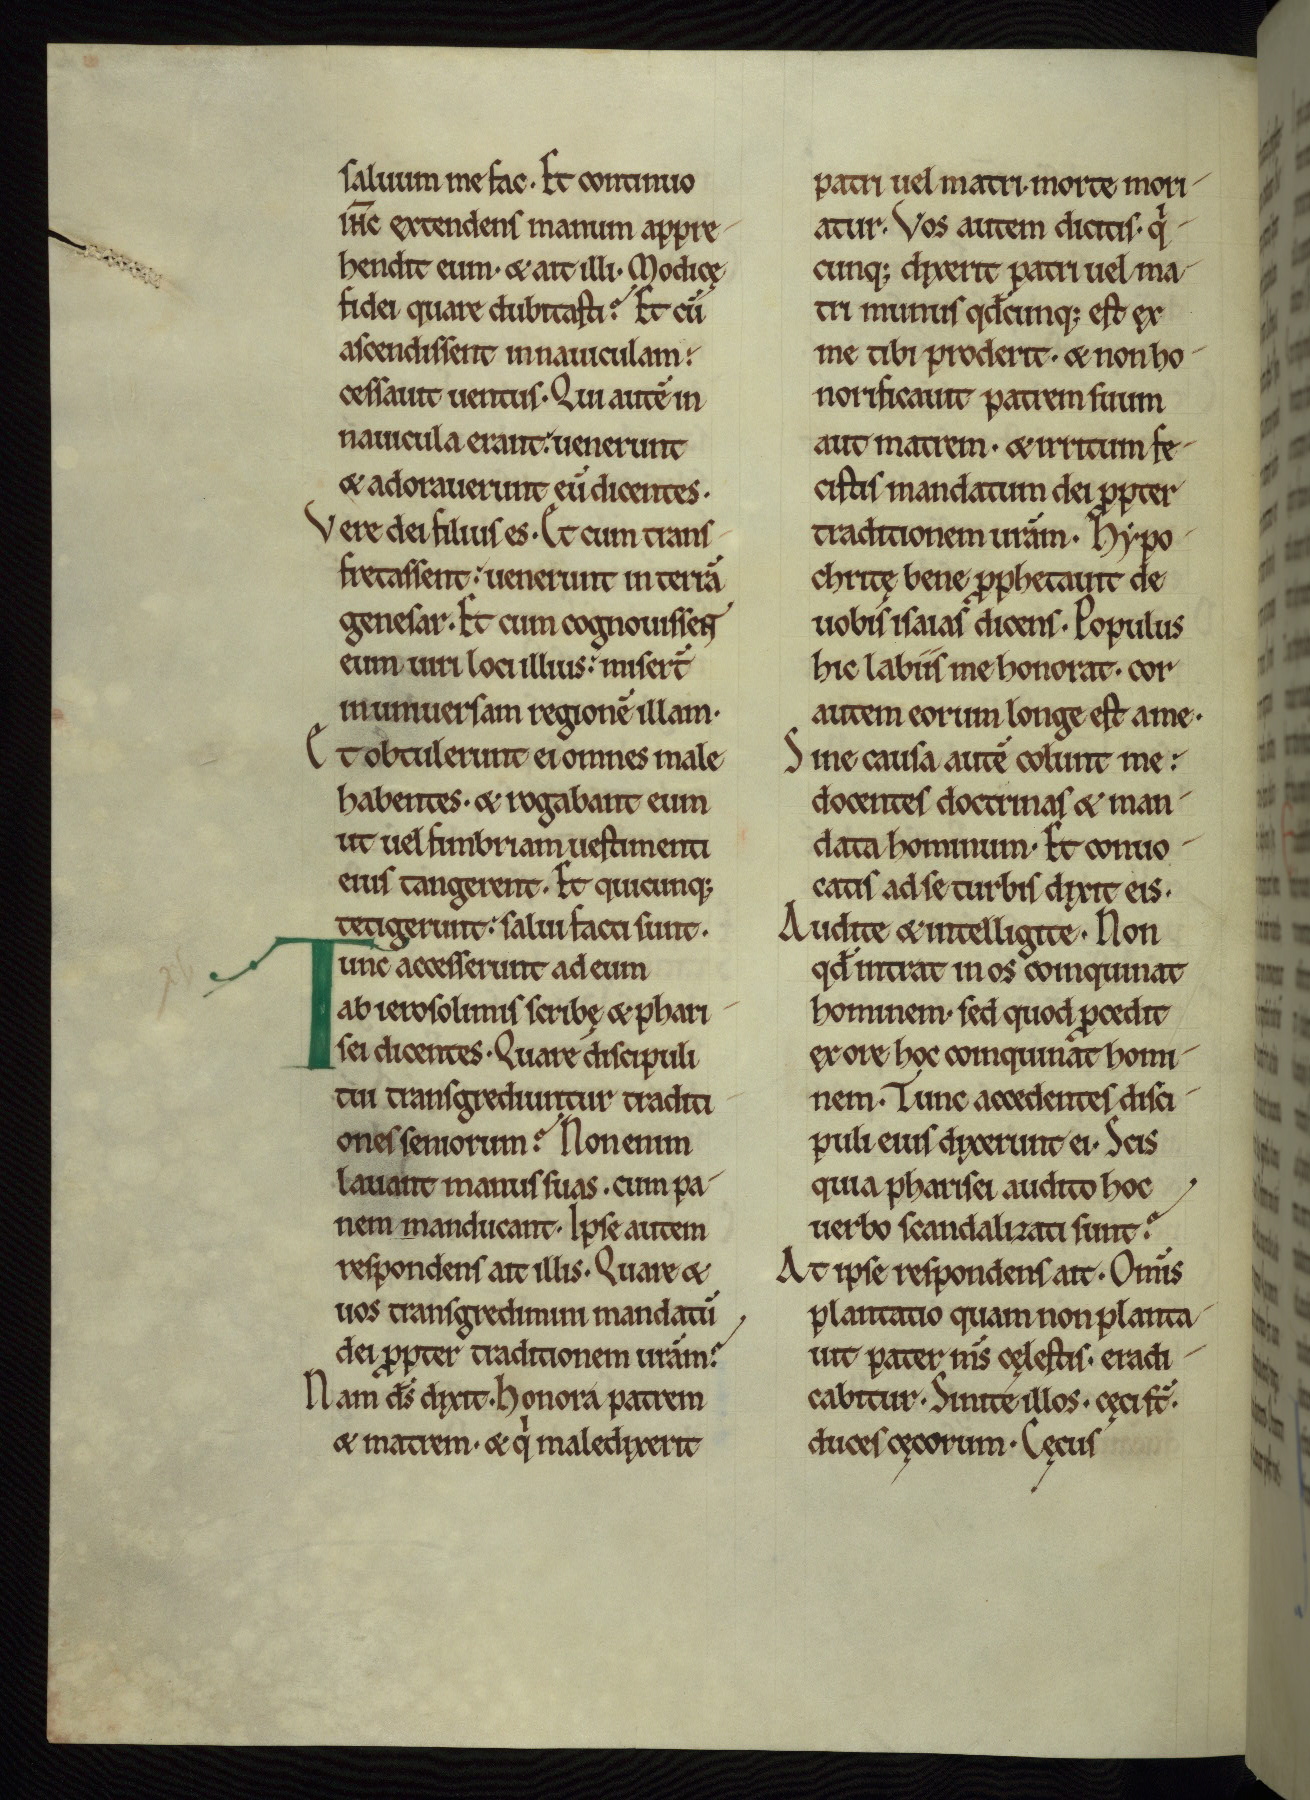 saluum me fac. Et continuo
ihc̅ extendens manum appre-
hendit eum. & ait illi. Modicę
fidei quare dubitasti? Et cū
ascendissent in nauiculam:
cessauit uentus. Qui autē in
nauicula erant: uenerunt
& adorauerunt eū dicentes.
Vere dei filius es. Et cum trans-
fretassent: uenerunt in terrā
genesar. Et cum cognouissent
eum uiri loci illius: misert̄
in uniuersam regionē illam.
Et obtulerunt ei omnes male
habentes. & rogabant eum
ut uel fimbriam uestimenti
eius tangerent. Et quicunq;
tetigerunt: salui facti sunt.
Tunc accesserunt ad eum
ab ierosolimis scribę & phari-
sei dicentes. Quare discipuli
tui transgrediuntur traditi-
ones seniorum? Non enim
lauant manus suas. cum pa-
nem manducant. Ipse autem
respondens ait illis. Quare &
uos transgredimini mandatū
dei ꝓpter traditionem urām?
Nam ds̄ dixit. Honora patrem
& matrem. & qͥ maledixerit
patri uel matri. morte mori-
atur. Vos autem dicitis. qͥ-
cunq; dixerit patri uel ma-
tri munus qđcunq; est ex
me tibi proderit. & non ho-
norificauit patrem suum
aut matrem. & irritum fe-
cistis mandatum dei ꝓpter
traditionem urām. Hẏpo-
chritę bene ꝓphetauit de
uobis isaias dicens. Populus
hic labiis me honorat. cor
autem eorum longe est a me.
Sine causa autē colunt me:
docentes doctrinas & man-
data hominum. Et conuo-
catis ad se turbis dixit eis.
Audite & intelligite. Non
qđ intrat in os coinquinat
hominem. sed quod ꝓcedit
ex ore hoc coinquinat homi-
nem. Tunc accedentes disci-
puli eius dixerunt ei. Scis
quia pharisei audito hoc
uerbo scandalizati sunt?
At ipse respondens ait. Omīs
plantatio quam non planta-
uit pater ms̄ cęlestis. eradi-
cabitur. Sinite illos. cęci st̄.
duces cęcorum. Cęcus